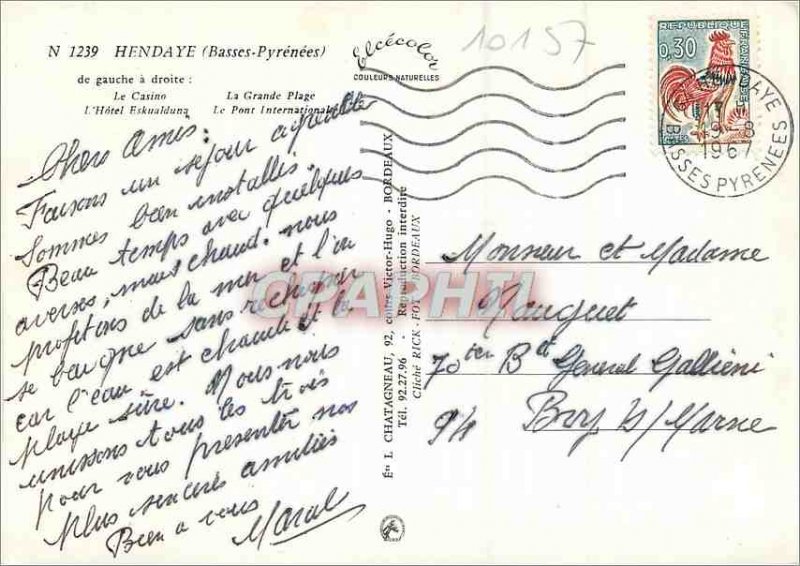 N 1239 HENDAYE (Basses-Pyrénées)
de gauche à droite :
Le Casino La Grande Plage
L'Hôtel Eskualduna Le Pont International
Elcécolor
COULEURS NATURELLES
10157
REPUBLIQUE FRANÇAISE
0,30
HENDAYE
19 8
1967
BASSES PYRENEES
Chers Amis :
Faisons un séjour agréable
Sommes bien installés.
Beau temps avec quelques
averses, mais chaud. nous
profitons de la mer et l'on
se baigne sans rechigner
car l'eau est chaude et la
plage sûre. Nous nous
unissons tous les trois
pour vous présenter nos
plus sincères amitiés
Bien a vous
CPAPHIL
Éts L. CHATAGNEAU, 92, cours Victor-Hugo - BORDEAUX
Tél. 92.27.96 - Reproduction interdite
Cliché RICK-FOT - BORDEAUX
Monsieur et Madame
Mauguet
70 ter Bd General Galliéni
Bry s/Marne
94